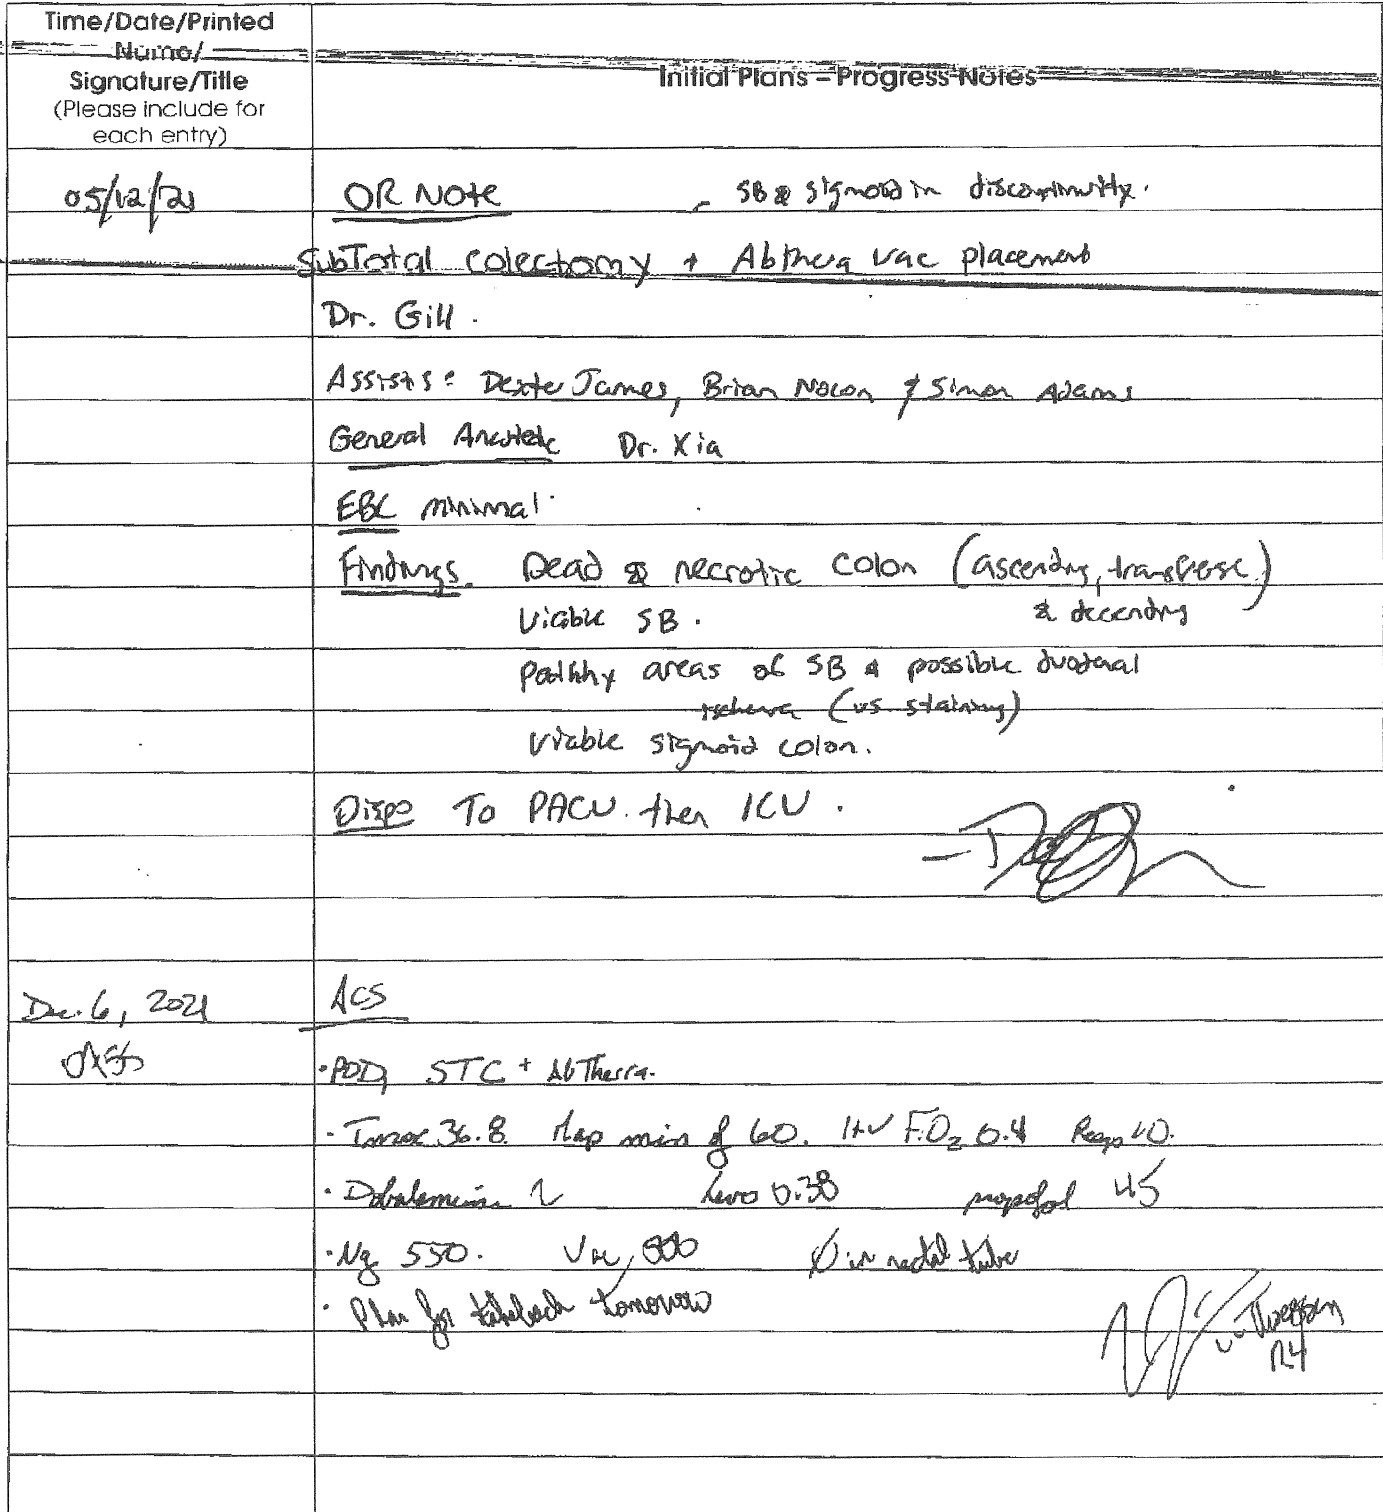 Time/Date/Printed
Name/
Signature/Title
(Please include for
each entry)
Initial Plans – Progress Notes
05/12/21
OR Note
- SB & sigmoid in discontinuity.
SubTotal colectomy + Abthera vac placement
Dr. Gill.
Assists: Dexter James, Brian Nocon & Simon Adams
General Dr. Xia
EBL minimal.
Findings Dead & necrotic colon (ascending, transverse)
& decending
Viable SB.
Patchy areas of SB & possible duodenal
ischemia (vs staining)
Viable sigmoid colon.
Dispo To PACU then ICU.
Dec. 6, 2021
ACS
• POD1 STC + AbThera.
• Tmax 36.8. Map min of 60. FiO2 0.4
• Levo 0.38 propofol 45
• Ng 550. Vac Ø in rectal tube
• Plan for takeback tomorrow
R4